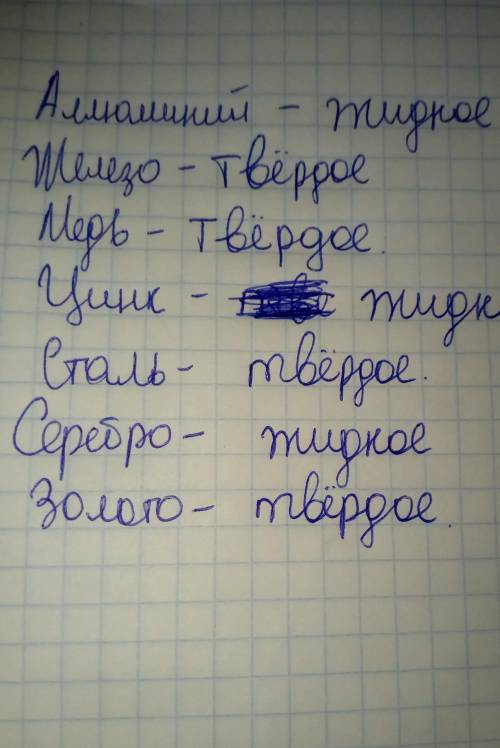 Алюминий - жидкое
Железо - твёрдое
Медь - твёрдое.
Цинк - жидк
Сталь - твёрдое.
Серебро - жидкое
Золото - твёрдое.